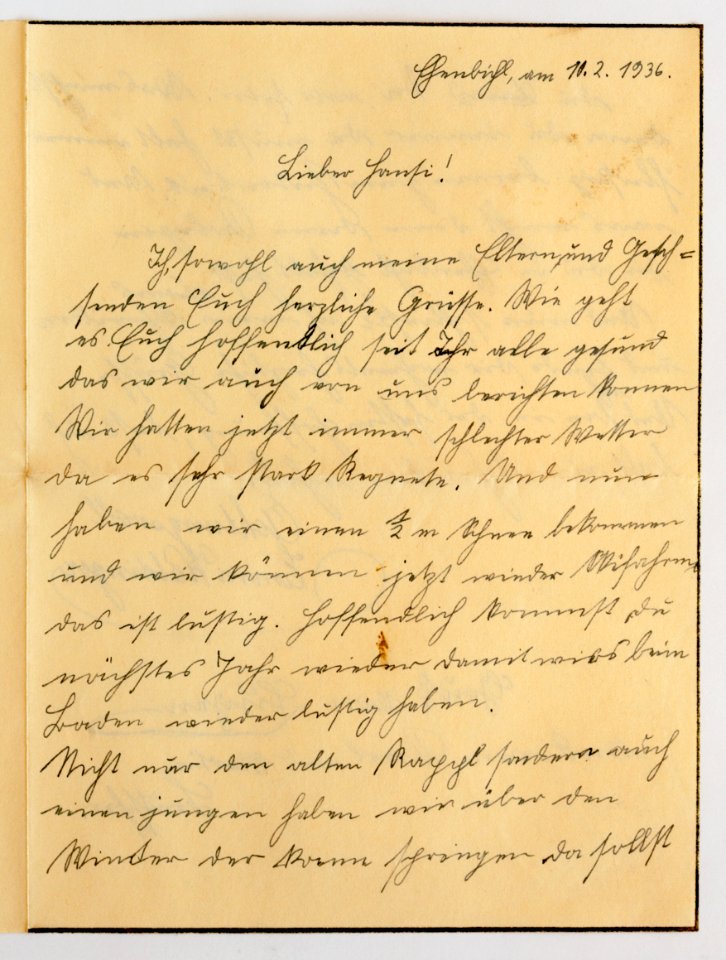 Ehenbichl, am 11.2.1936.
Lieber Hansi!
Ich, sowohl auch meine Eltern, und Gesch=
senden Euch herzliche Grüsse. Wie geht
es Euch hoffendlich seit Ihr alle gesund
das wir auch von uns berichten können
Wir hatten jetzt immer schlechter Wetter
da es sehr stark Regnete. Und nun
haben wir einen ½ m Schnee bekommen
und wir können jetzt wieder Skifahren
das ist lustig. Hoffendlich kommst du
nächstes Jahr wieder damit wirs beim
Baden wieder lustig haben.
Nicht nur den alten Rappl sondern auch
einen jungen haben wir über den
Winter der kann springen da sollst